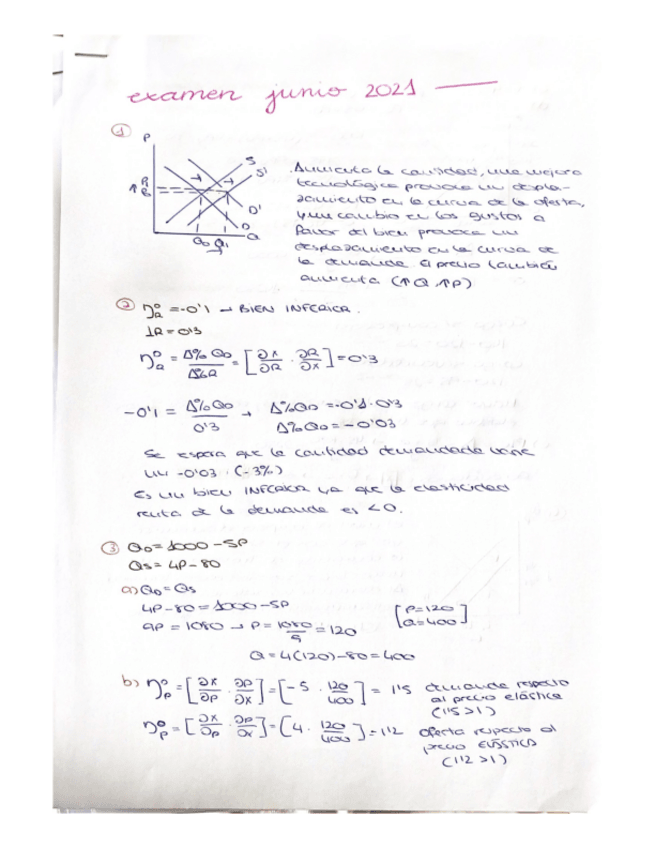 examen junio 2021
①
P
S
S'
↑ P1
P0
D'
D
Q0 Q1 Q
Aumenta la cantidad, una mejora
tecnológica provoca un despla-
zamiento en la curva de la oferta,
y un cambio en los gustos a
favor del bien provoca un
desplazamiento en la curva de
la demanda. El precio también
aumenta (↑Q, ↑P)
② η^D_R = -0'1 → BIEN INFERIOR.
↓R = 0'3
η^D_R = Δ% QD / Δ%R = [∂X/∂R · ∂R/∂X] = 0'3
-0'1 = Δ%QD / 0'3 → Δ%QD = -0'1·0'3
Δ%QD = -0'03
Se espera que la cantidad demandada varíe
un -0'03 (-3%)
Es un bien INFERIOR ya que la elasticidad
renta de la demanda es <0.
③ QD = 1000 - 5P
QS = 4P - 80
a) QD = QS
4P - 80 = 1000 - 5P
9P = 1080 → P = 1080/9 = 120
[P=120
Q=400]
Q = 4(120) - 80 = 400
b) η^D_P = [∂X/∂P · ∂P/∂X] = [-5 · 120/400] = 1'5 demanda respecto
al precio elástica
(1'5 > 1)
η^O_P = [∂X/∂P · ∂P/∂X] = [4 · 120/400] = 1'2 oferta respecto al
precio ELÁSTICA
(1'2 > 1)